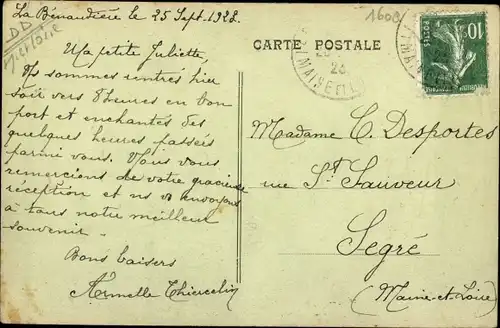 La Bénaudière le 25 Sept. 1928.
Ma petite Juliette,
Ns sommes rentrés hier
soir vers 8 heures en bon
port et enchantés des
quelques heures passées
parmi vous. Nous vous
remercions de votre gracieuse
réception et ns v envoyons
à tous notre meilleur
souvenir.
Bons baisers
Armelle Thiercelin
CARTE POSTALE
Madame C. Desportes
rue St Sauveur
Segré
(Maine-et-Loire)
1608
10c
POSTES